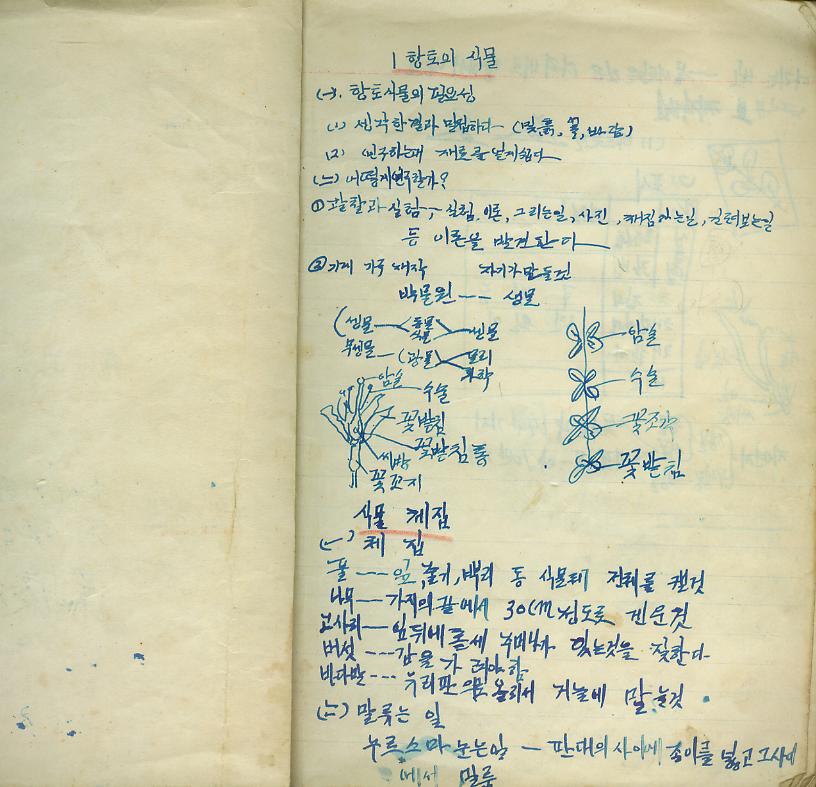 1 향토의 식물
(一). 향토식물의 필요성
(1) 생각한결과 밀접하다 (빛, 흙, 물, 바람)
(2) 연구하는데 재료를 얻기쉽다
(二) 어떻게연구할가?
① 관찰과 실험, 실험, 이론, 그리는일, 사진, 채집하는일, 길러보는일
등 이론을 발견한다
② 기계 기구 제작 자기가 만들것
박물원 --- 생물
(생물 동물 식물 생물
무생물 (광물 물리 화학
암술
수술
꽃받침
꽃받침통
씨방
꽃꼬지
암술
수술
꽃조각
꽃받침
식물 채집
(一) 채 집
풀 --- 잎, 줄기, 뿌리 등 식물의 전체를 캘것
나무 --- 가지의 끝에서 30cm 정도로
고사리 --- 잎뒤에 홀세 주머니가 있는것을
버섯 --- 갓을 가
바다말 --- 유리판 올려서 거늘에 말늘것
(二) 말류는 일
누르스마 눈는일 - 판대의 사이에 종이를 넣고 그사이
에서 말룸